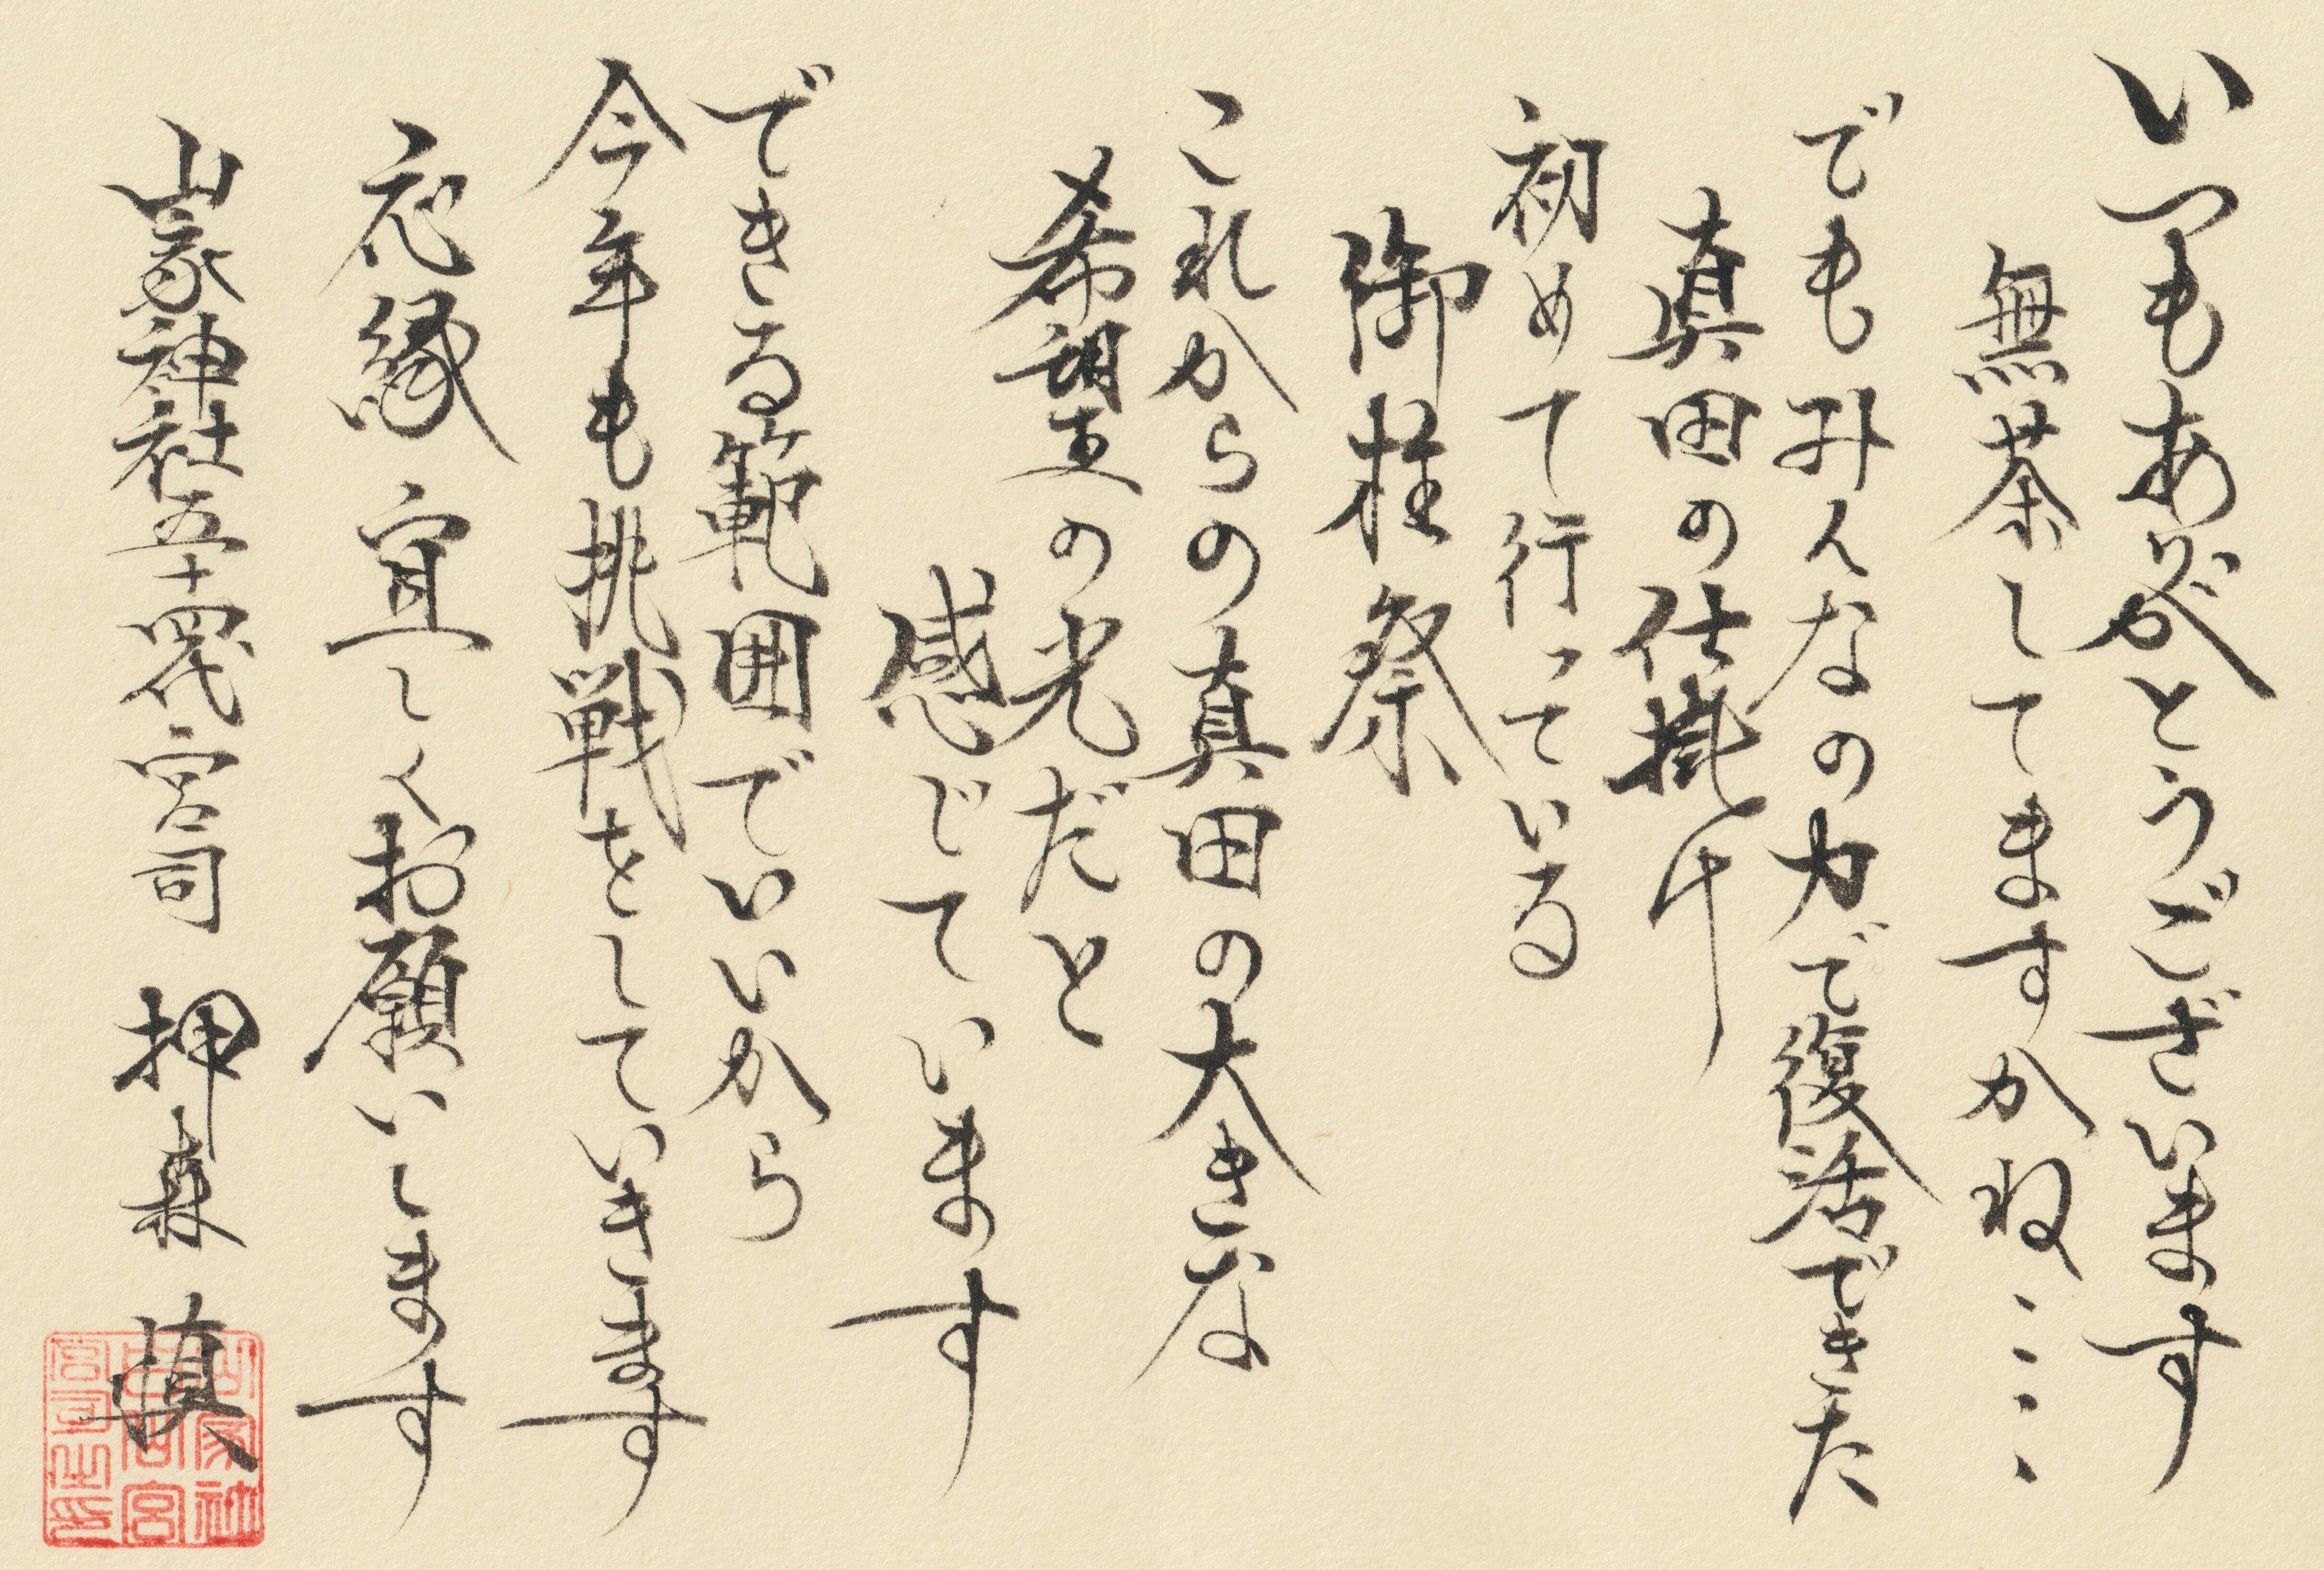 いつもありがとうございます
無茶してますかね……
でもみんなの力で復活できた
真田の仕掛け
初めて行っている
御柱祭
これからの真田の大きな
希望の光だと
感じています
できる範囲でいいから
今年も挑戦をしていきます
応縁宜しくお願いします
山家神社五十四代宮司 押森慎